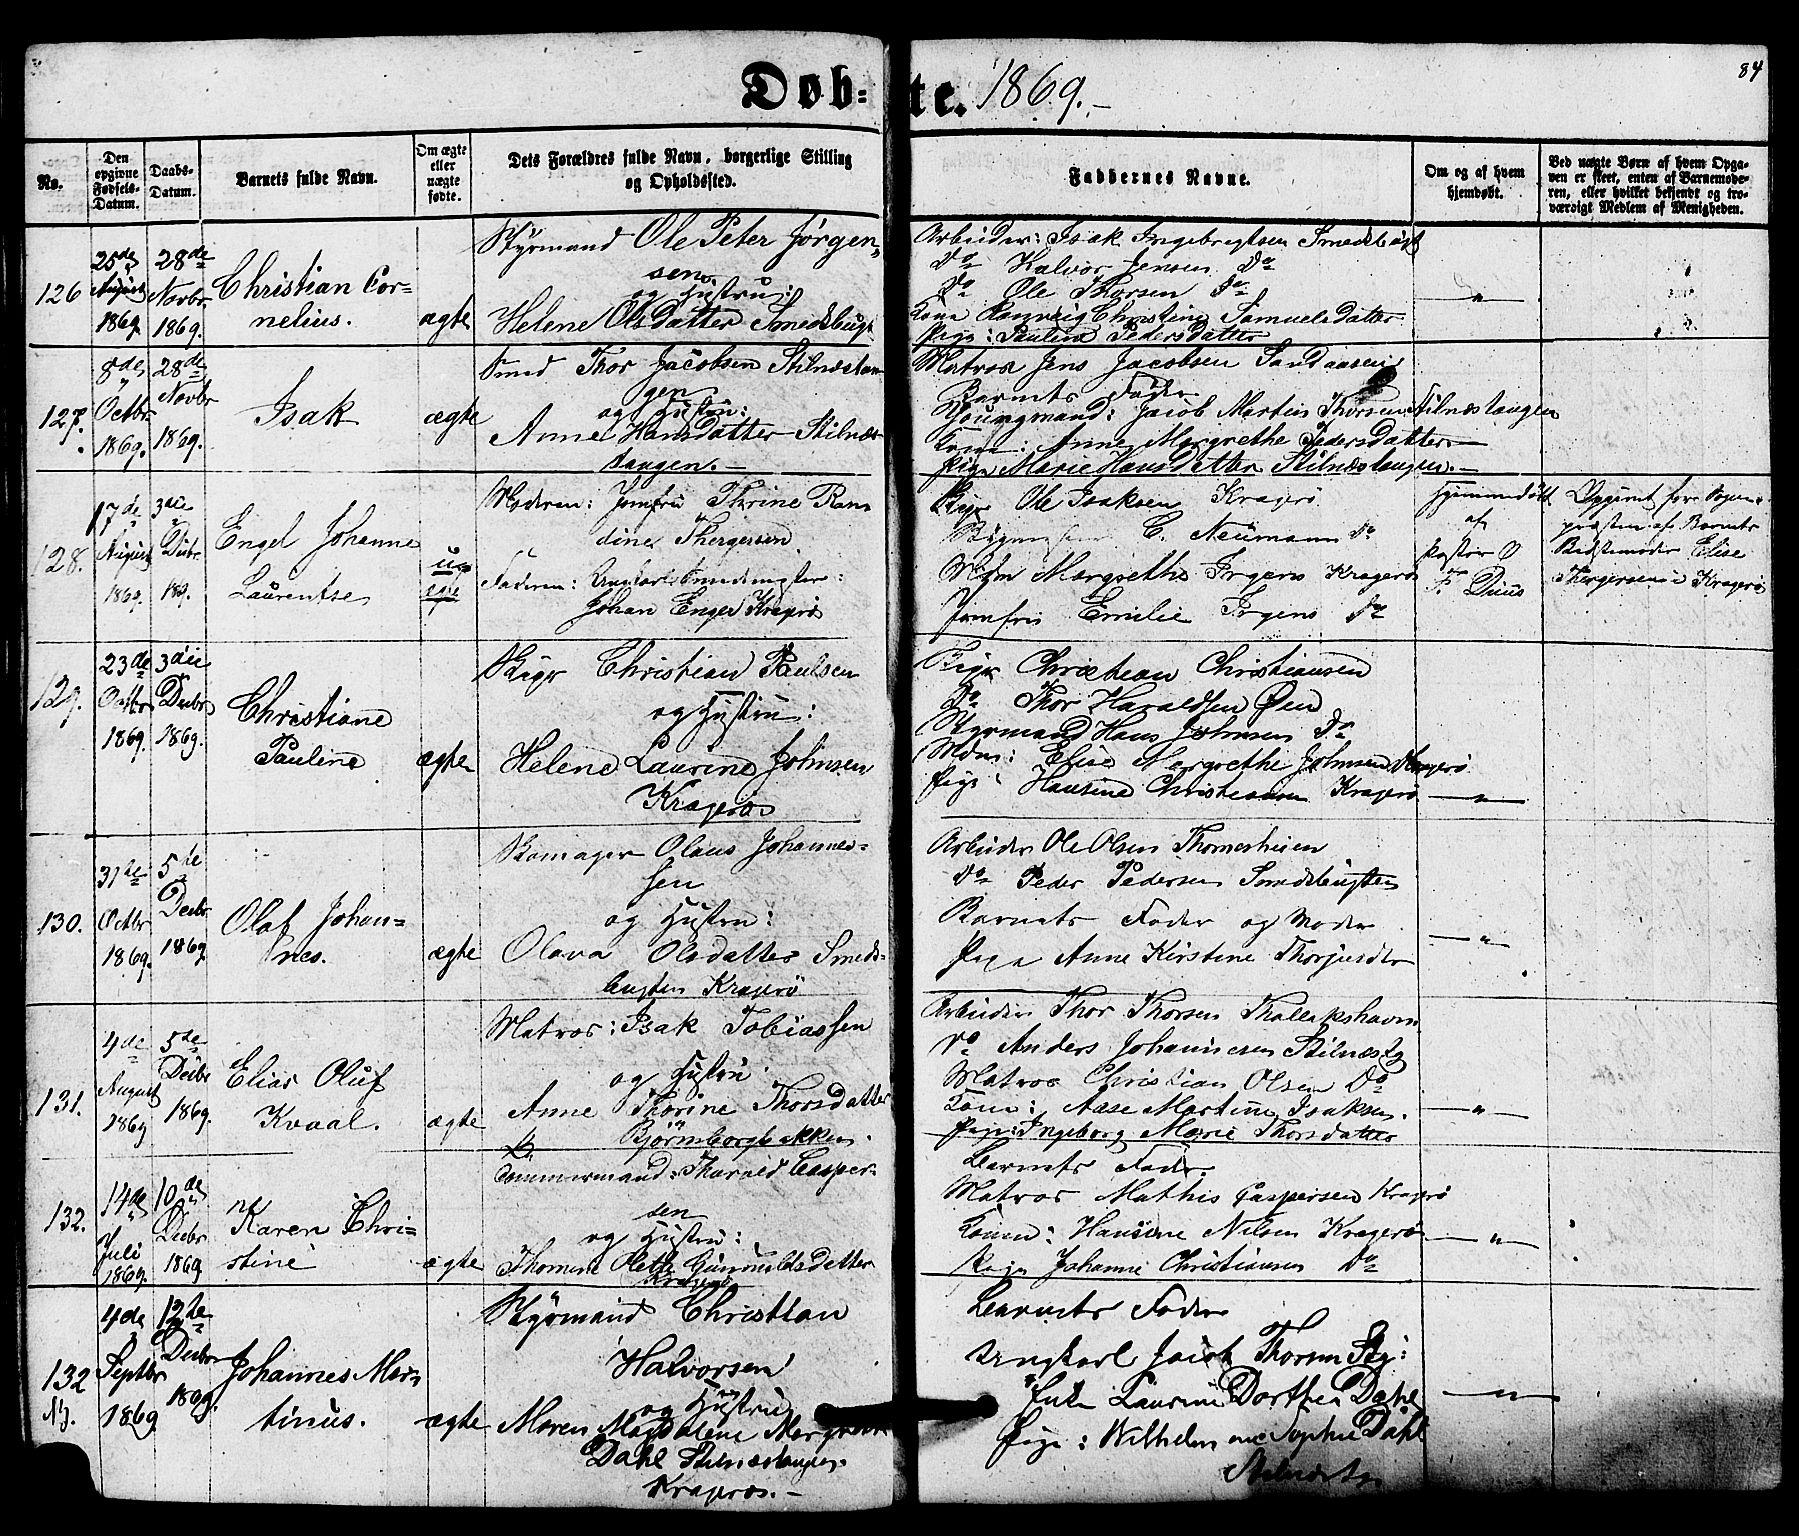 Døb-te. 1869.-
84
No.
Den opgivne Fødsels-Datum.
Daabs-Datum.
Barnets fulde Navn.
Om ægte eller uægte fødte.
Dets Forældres fulde Navn, borgerlige Stilling og Opholdssted.
Faddernes Navne.
Om og af hvem hjemdøbt.
Ved uægte Børn af hvem Opga-
ven er skeet, enten af Barnemode-
ren, eller hvilket bekjendt og tro-
værdigt Medlem af Menigheden.
126
25de August 1869.
28de Novbr 1869.
Christian Cor-
nelius.
ægte
Styrmand Ole Peter Jørgen-
sen
og Hustru:
Helene Olsdatter Smedsbugt
Arbeider: Isak Ingebrigtsen Smedsbugt
Do Halvor Jensen Do
Do Ole Thorsen Do
Kone Christine Samuelsdatter
Pige: Pauline Pedersdatter
— " —
127.
8de Octbr 1869.
28de Novbr 1869.
Isak
ægte
Smed Thor Jacobsen Stilnæstan-
gen
og Hustru:
Anne Hansdatter Stilnæs-
tangen.-
Matros Jens Jacobsen Sandaasen
Barnets Fader
Youngmand: Jacob Martin Thorsen Stilnæstangen
Kone: Anne Margrethe Pedersdatter
Pige Marie Hansdatter Stilnæstangen.-
128.
17de August 1869.
3die Decbr 1869.
Engel Johanne
Laurentse
u-
egte
Moderen: Jomfru Thrine Ran-
dine Thergersen
Faderen: Ungkarl Smedmester:
Johan Enger Kragerø
Skipr Ole Isaksen Kragerø
C. Neumann Do
Mdm Margrethe Irgens Kragerø
Jomfru Emilie Irgens Do
Hjemmedøbt
af
Pastor
F. Duus
Opgivet for Sogne-
præsten af Barnets
Bedstemoder Elise
Thergersen i Kragerø
129.
23de Octbr 1869.
3die Decbr 1869.
Christiane
Pauline
ægte
Skipr Christian Paulsen
og Hustru:
Helene Laurine Johnsen
Kragerø
Skipr Christian Christiansen
Do Thor Haraldsen Øen
Styrmand Hans Johnsen Do
Mdm: Elise Margrethe Johnsen Kragerø
Pige: Hansine Christiansen Kragerø
— " —
130.
31te Octbr 1869.
5te Decbr 1869
Olaf Johan-
nes.
ægte
Skomager Olaus Johannes-
sen
og Hustru:
Olava Olsdatter Smeds-
bugten Kragerø
Arbeider Ole Olsen Thomesheien
Do Peder Pedersen Smedsbugten
Barnets Fader og Moder
Pige Anne Kirstine Thorjusdtr
— " —
131.
4de August 1869
5te Decbr 1869.
Elias Oluf
Kvaal.
ægte
Matros: Isak Tobiassen
og Hustru
Anne Thorine Thorsdatter
Bjørnsborgbakken.
Arbeider Thor Thorsen Thallakshavn
Do Anders Johannesen Stilnæstg
Matros Christian Olsen Do
Kone: Aase Martine Isaksen.
Pige: Ingeborg Marie Thorsdatter
— " —
132.
14de Juli 1869.
10de Decbr 1869
Karen Chri-
stine
ægte
Tømmermand: Tharald Casper-
sen
og Hustru:
Thomine Olette Gunnuldsdatter
Kragerø
Barnets Fader.
Matros Mathis Caspersen Kragerø
Konen: Hansine Nilsen Kragerø
Pige Johanne Christiansen Do
— " —
132
4de Septbr 1869
12te Decbr 1869.
Johannes Mar-
tinus.
ægte
Styrmand Christian
Halvorsen
og Hustru
Maren Magdalene Margrethe
Dahl Stilnæstangen
Kragerø.-
Barnets Fader
Ungkarl Jacob Thorsen Stg:
Enke Laurine Dorthea Dahl
Pige: Wilhelmine Sophie Dahl
Stilnæstg
— " —